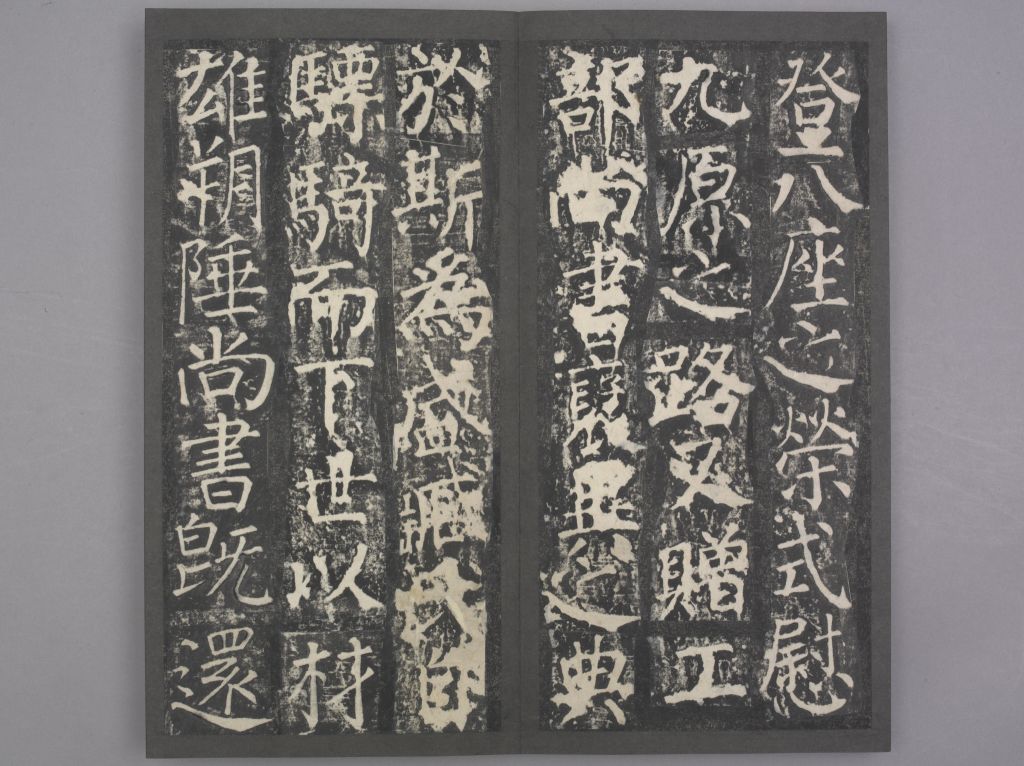 登八座之榮式慰
九原之路又贈工
部尚書之典
於斯為盛臧氏自
驃騎而下世以材
雄朔陲尚書既還